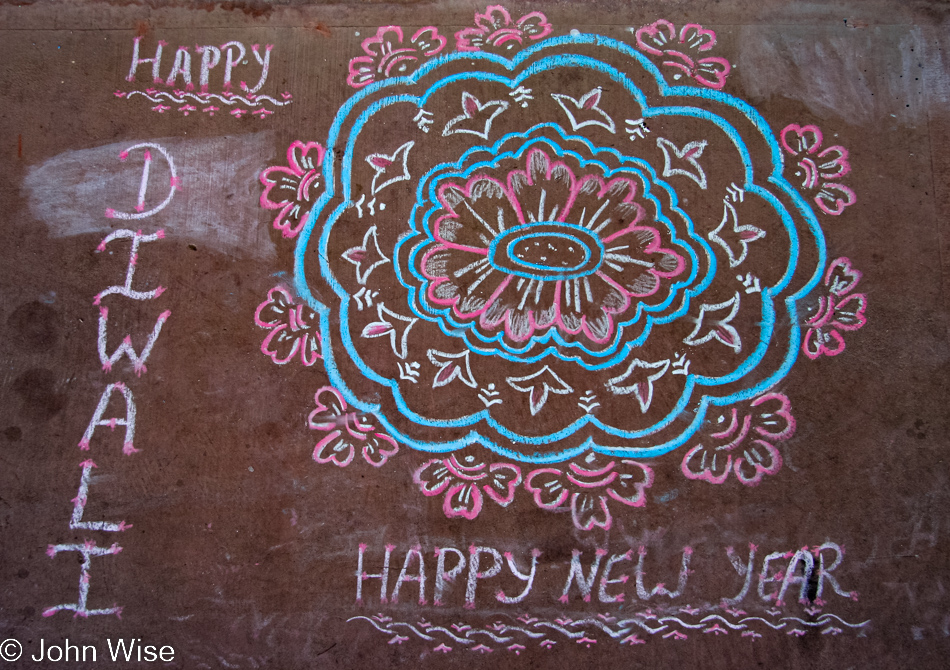 HAPPY
DIWALI
HAPPY NEW YEAR
© John Wise